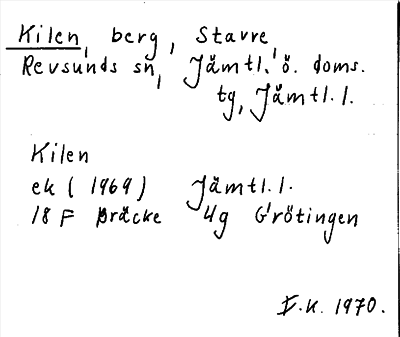 Kilen, berg, Stavre,
Revsunds sn, Jämtl. ö. doms.
tg, Jämtl. l.
Kilen
ek (1969) Jämtl. l.
18 F Bräcke 4g Grötingen
I.K. 1970.